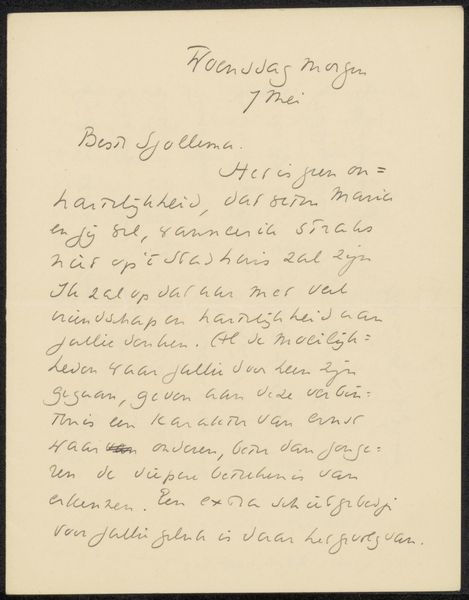 Woensdag morgen
7 Mei
Beste Sjollema.
Het is geen on=
hartelijkheid, dat weten Maria
en jij wel, wanneer ik straks
niet op 't stadhuis zal zijn
Ik zal op dat uur met veel
vriendschap en hartelijkheid aan
jullie denken. Al de moeilijk=
heden waar jullie doorheen zijn
gegaan, geven aan deze verbin=
tenis een karakter van ernst
waarvan ouderen, beter dan jonge=
ren de diepere betekenis van
erkennen. Een extra schietgebedje
voor jullie geluk is daar het gevolg van.